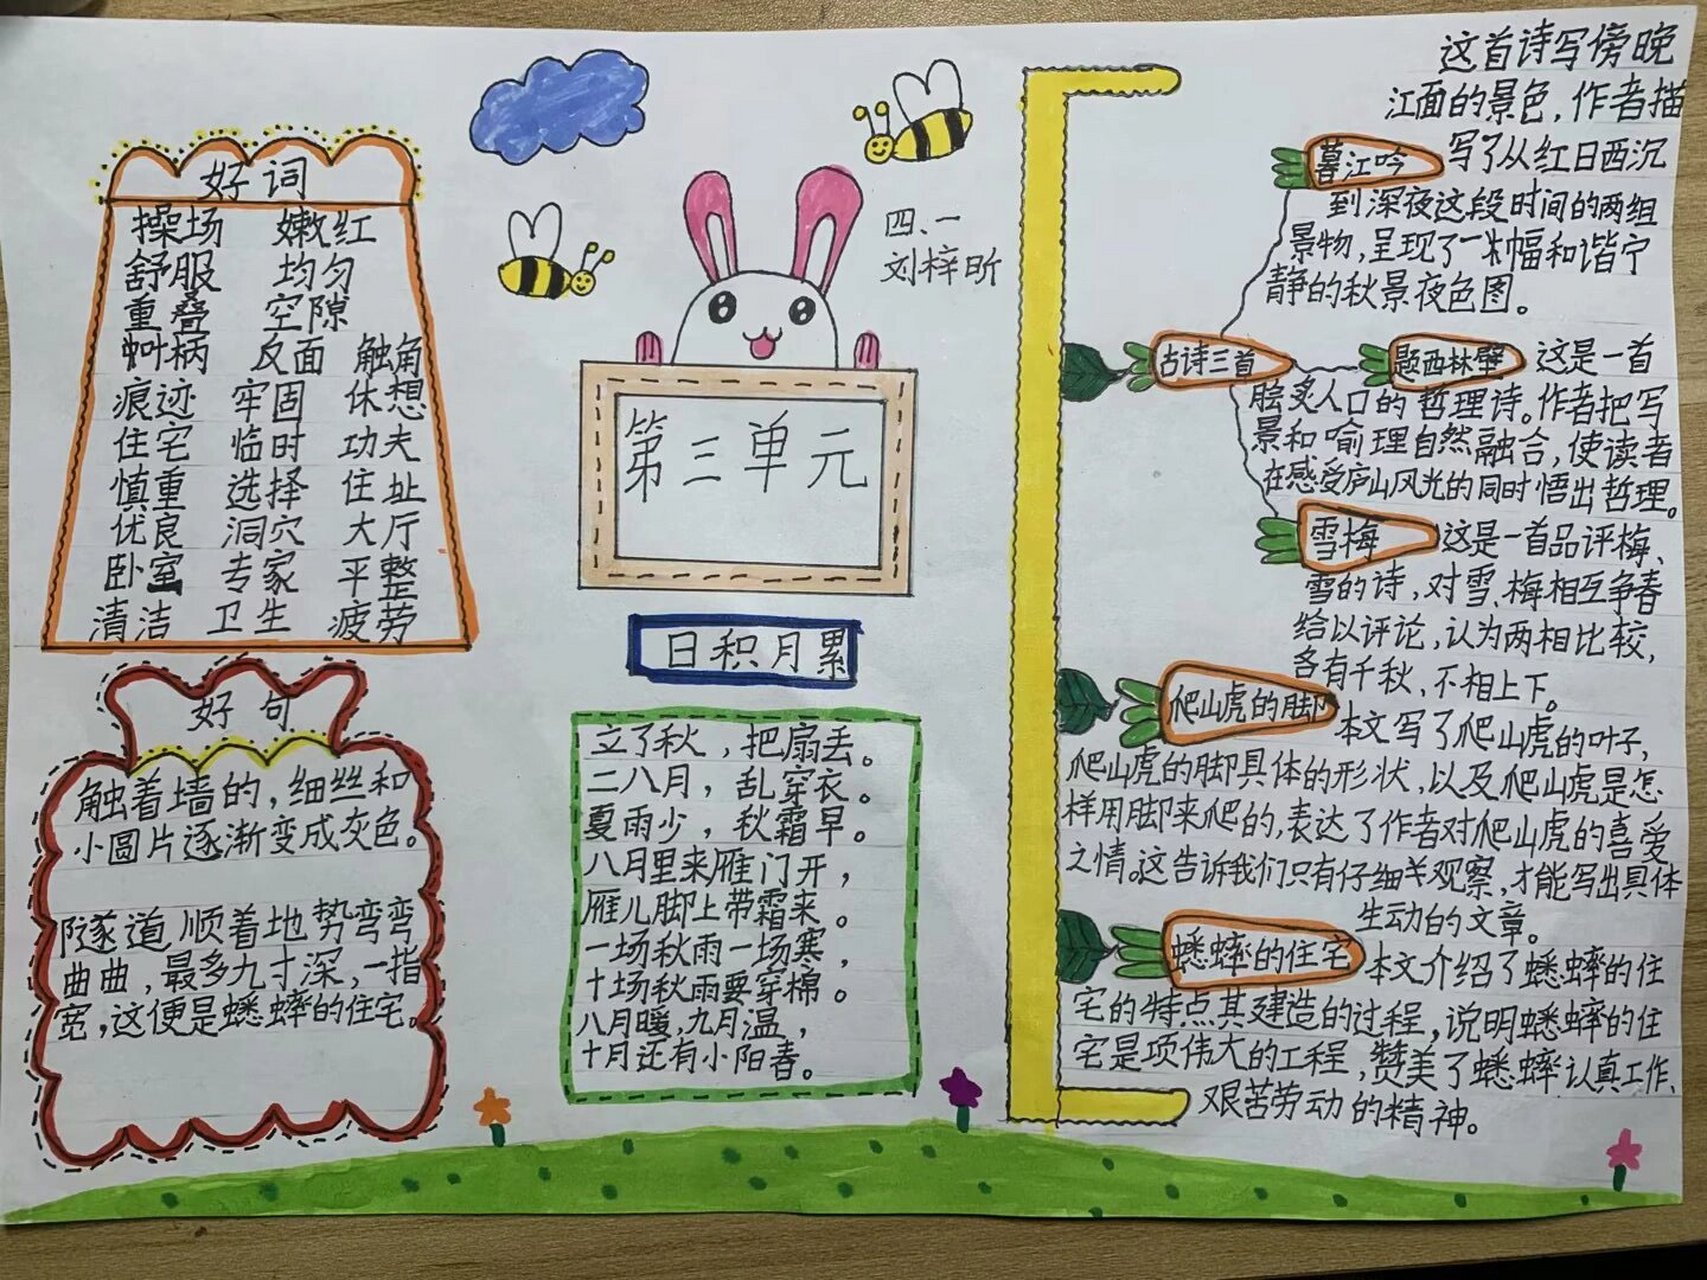 好词
操场 嫩红
舒服 均匀
重叠 空隙
叶柄 反面 触角
痕迹 牢固 休想
住宅 临时 功夫
慎重 选择 住址
优良 洞穴 大厅
卧室 专家 平整
清洁 卫生 疲劳
好句
触着墙的，细丝和
小圆片逐渐变成灰色。
隧道顺着地势弯弯
曲曲，最多九寸深，一指
宽，这便是蟋蟀的住宅。
四、一
刘梓昕
第三单元
日积月累
立了秋，把扇丢。
二八月，乱穿衣。
夏雨少，秋霜早。
八月里来雁门开，
雁儿脚上带霜来。
一场秋雨一场寒，
十场秋雨要穿棉。
八月暖，九月温，
十月还有小阳春。
古诗三首
暮江吟
这首诗写傍晚
江面的景色，作者描
写了从红日西沉
到深夜这段时间的两组
景物，呈现了一幅和谐宁
静的秋景夜色图。
题西林壁
这是一首
脍炙人口的哲理诗。作者把写
景和喻理自然融合，使读者
在感受庐山风光的同时悟出哲理。
雪梅
这是一首品评梅、
雪的诗，对雪、梅相互争春
给以评论，认为两相比较，
各有千秋，不相上下。
爬山虎的脚
本文写了爬山虎的叶子，
爬山虎的脚具体的形状，以及爬山虎是怎
样用脚来爬的，表达了作者对爬山虎的喜爱
之情。这告诉我们只有仔细关观察，才能写出具体
生动的文章。
蟋蟀的住宅
本文介绍了蟋蟀的住
宅的特点其建造的过程，说明蟋蟀的住
宅是项伟大的工程，赞美了蟋蟀认真工作、
艰苦劳动的精神。